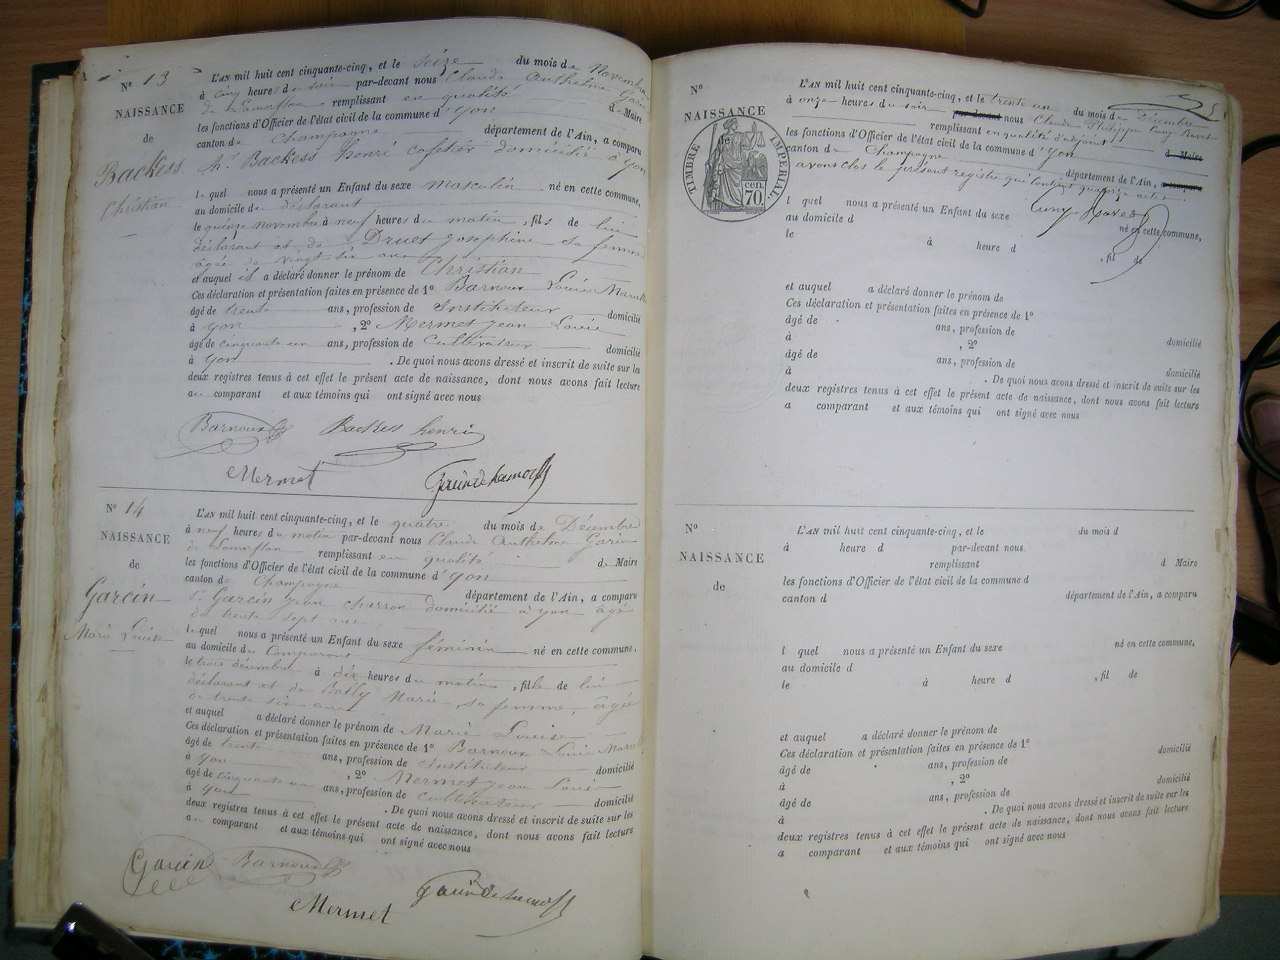 N° 13
NAISSANCE
de
Backess
Christian
L'AN mil huit cent cinquante-cinq, et le seize du mois de Novembre
à cinq heures du soir par-devant nous Claude Anthelme Garin
de Lamorflan remplissant en qualité de Maire
les fonctions d'Officier de l'état civil de la commune d'Yon
canton de Champagne département de l'Ain, a comparu
Sr Backess henri cafetier domicilié à Yon
lequel nous a présenté un Enfant du sexe masculin né en cette commune,
au domicile du déclarant
le quinze novembre à neuf heures du matin, fils de lui
déclarant et de Druet Joséphine sa femme
âgée de vingt six ans
et auquel il a déclaré donner le prénom de Christian
Ces déclaration et présentation faites en présence de 1° Barnoux Louis Marie
âgé de trente ans, profession de Instituteur domicilié
à Yon , 2° Mermet Jean Louis
âgé de cinquante un ans, profession de Cultivateur domicilié
à Yon . De quoi nous avons dressé et inscrit de suite sur les
deux registres tenus à cet effet le présent acte de naissance, dont nous avons fait lecture
au comparant et aux témoins qui ont signé avec nous
Barnoux Backess henri
Mermet Garin de Lamorflan
N° 14
NAISSANCE
de
Garcin
Marie Louise
L'AN mil huit cent cinquante-cinq, et le quatre du mois de Décembre
à neuf heures du matin par-devant nous Claude Anthelme Garin
de Lamorflan remplissant en qualité de Maire
les fonctions d'Officier de l'état civil de la commune d'Yon
canton de Champagne département de l'Ain, a comparu
Sr Garcin Jean charron domicilié à Yon âgé
de trente sept ans
lequel nous a présenté un Enfant du sexe féminin né en cette commune,
au domicile du Comparant
le trois décembre à dix heures du matin, fille de lui
déclarant et de Bally Marie sa femme, âgée
de trente six ans
et auquel a déclaré donner le prénom de Marie Louise
Ces déclaration et présentation faites en présence de 1° Barnoux Louis Marie
âgé de trente ans, profession de Instituteur domicilié
à Yon , 2° Mermet Jean Louis
âgé de cinquante un ans, profession de Cultivateur domicilié
à Yon . De quoi nous avons dressé et inscrit de suite sur les
deux registres tenus à cet effet le présent acte de naissance, dont nous avons fait lecture
au comparant et aux témoins qui ont signé avec nous
Garcin Barnoux
Mermet Garin de Lamorflan
N°
NAISSANCE
de
TIMBRE IMPERIAL
70 cen.
L'AN mil huit cent cinquante-cinq, et le trente un du mois de Décembre
à onze heures du soir par-devant nous Claude Philippe
remplissant en qualité d'adjoint d Maire
les fonctions d'Officier de l'état civil de la commune d'Yon
canton de Champagne département de l'Ain, a comparu
avons clos le présent registre qui contient quatorze actes
l quel nous a présenté un Enfant du sexe né en cette commune,
au domicile d
le à heure d , fil de
et auquel a déclaré donner le prénom de
Ces déclaration et présentation faites en présence de 1°
âgé de ans, profession de
à , 2° domicilié
âgé de ans, profession de
à domicilié
. De quoi nous avons dressé et inscrit de suite sur les
deux registres tenus à cet effet le présent acte de naissance, dont nous avons fait lecture
a comparant et aux témoins qui ont signé avec nous
N°
NAISSANCE
de
L'AN mil huit cent cinquante-cinq, et le du mois d
à heure d par-devant nous
remplissant d Maire
les fonctions d'Officier de l'état civil de la commune d
canton d département de l'Ain, a comparu
l quel nous a présenté un Enfant du sexe né en cette commune,
au domicile d
le à heure d , fil de
et auquel a déclaré donner le prénom de
Ces déclaration et présentation faites en présence de 1°
âgé de ans, profession de domicilié
à , 2°
âgé de ans, profession de domicilié
à . De quoi nous avons dressé et inscrit de suite sur les
deux registres tenus à cet effet le présent acte de naissance, dont nous avons fait lecture
a comparant et aux témoins qui ont signé avec nous